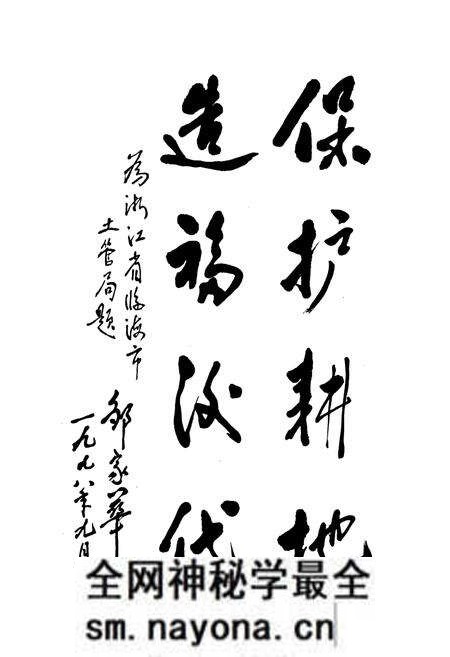 保护耕地
造福后代
为浙江省临海市
土管局题
邹家华
一九九八年九月
全网神秘学最全
sm.nayona.cn